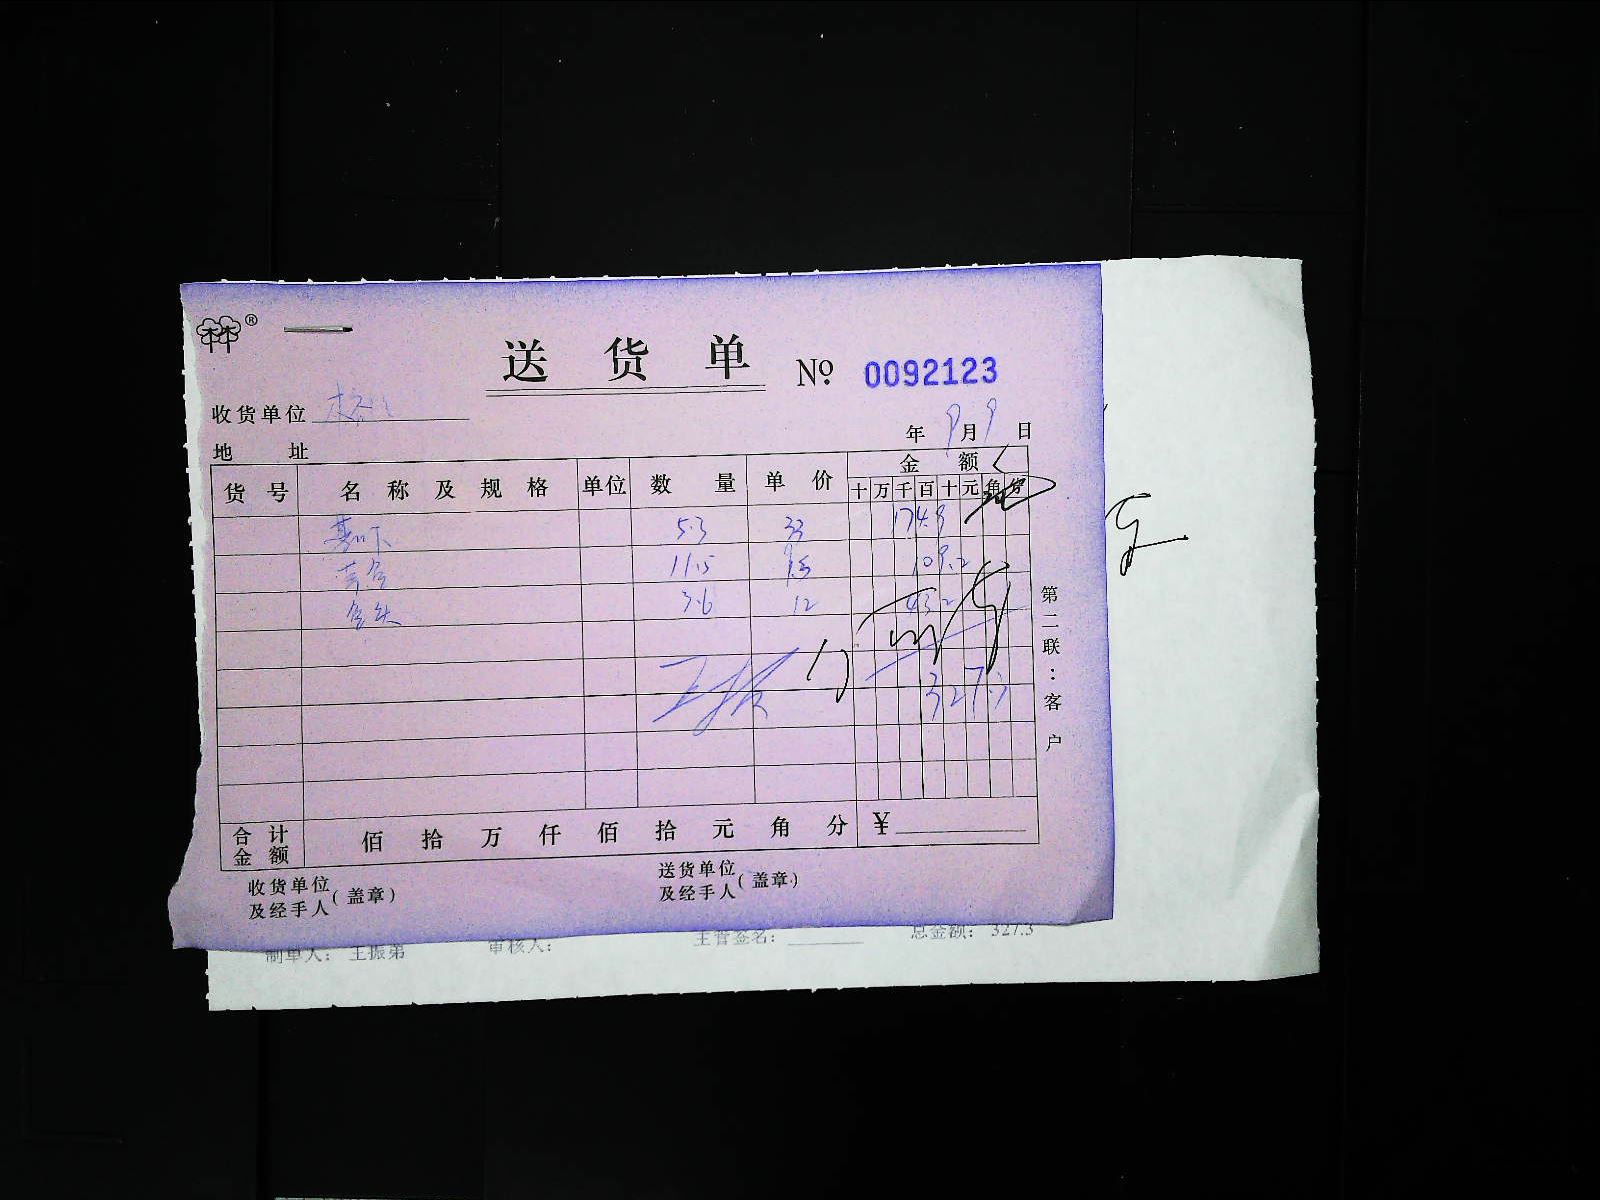 ®
送货单 No. 0092123
收货单位
年 9月9日
地 址
货号 名称及规格 单位 数量 单价 金额
十 万 千 百 十 元 角 分
基围虾 5.3 33 174.9
11.5 9.5 109.2
鱼头 3.6 12 43.2
王振
327.3
第二联:客户
合计金额 佰 拾 万 仟 佰 拾 元 角 分 ¥
收货单位及经手人(盖章) 送货单位及经手人(盖章)
制单人: 王振弟 审核人: 主管签名: 总金额: 327.3